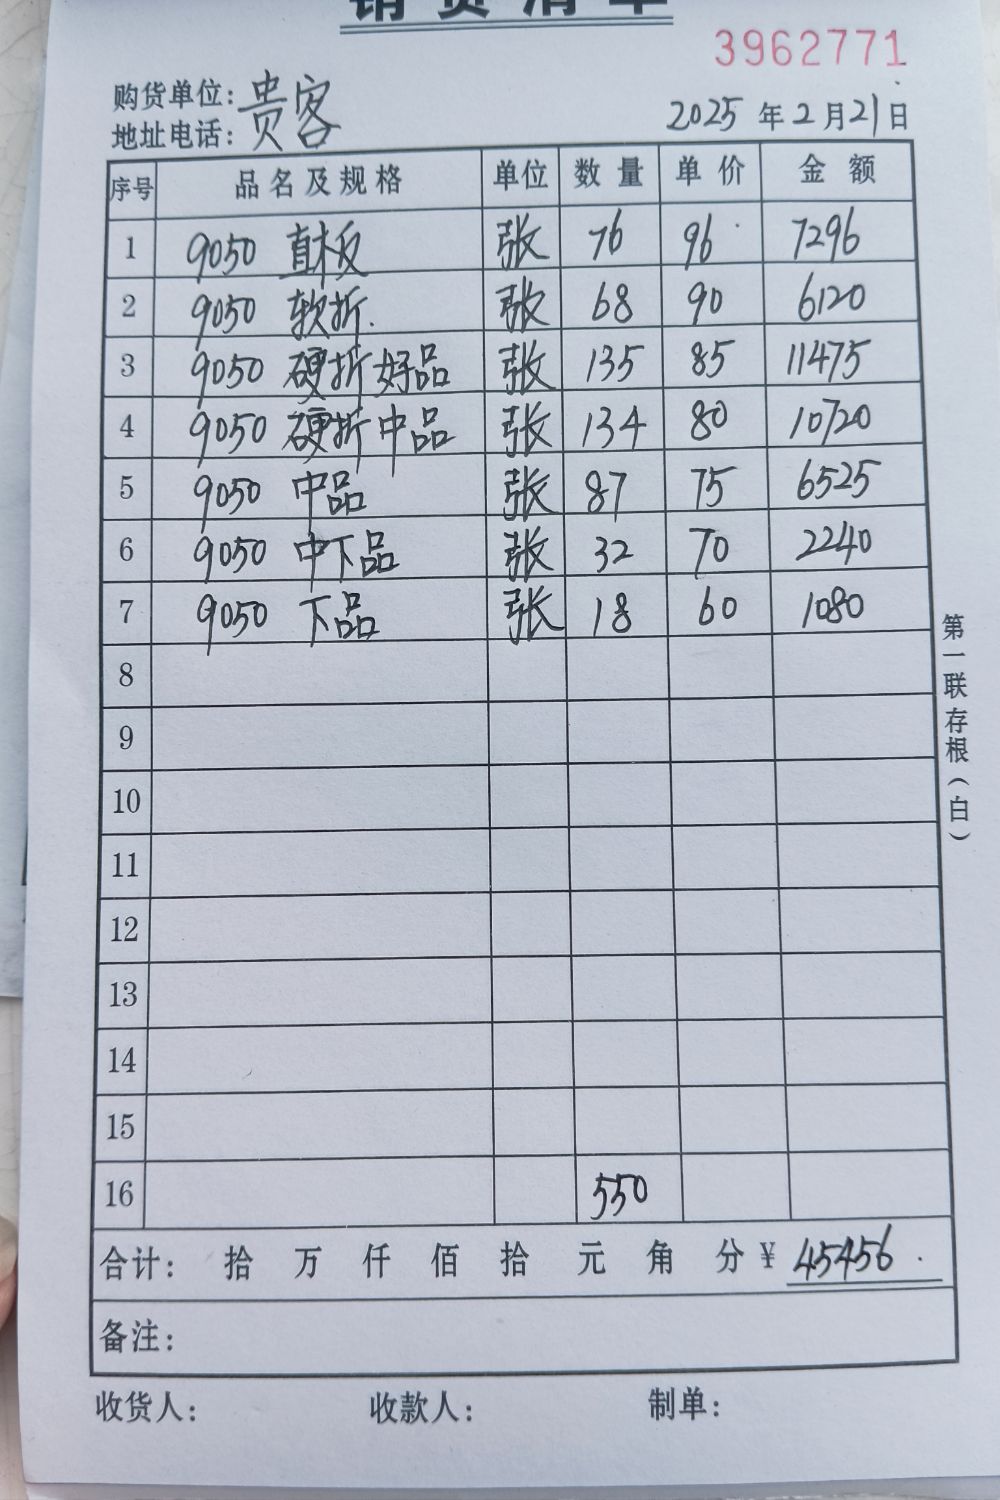 销货清单
3962771
购货单位: 贵客
地址电话:
2025 年 2 月 21 日
序号 品名及规格 单位 数量 单价 金额
1 9050 直板 张 76 96 7296
2 9050 软折. 张 68 90 6120
3 9050 硬折好品 张 135 85 11475
4 9050 硬折中品 张 134 80 10720
5 9050 中品 张 87 75 6525
6 9050 中下品 张 32 70 2240
7 9050 下品 张 18 60 1080
8
9
10
11
12
13
14
15
16 550
合计: 拾 万 仟 佰 拾 元 角 分 ¥ 45456.
备注:
收货人: 收款人: 制单:
第一联存根(白)